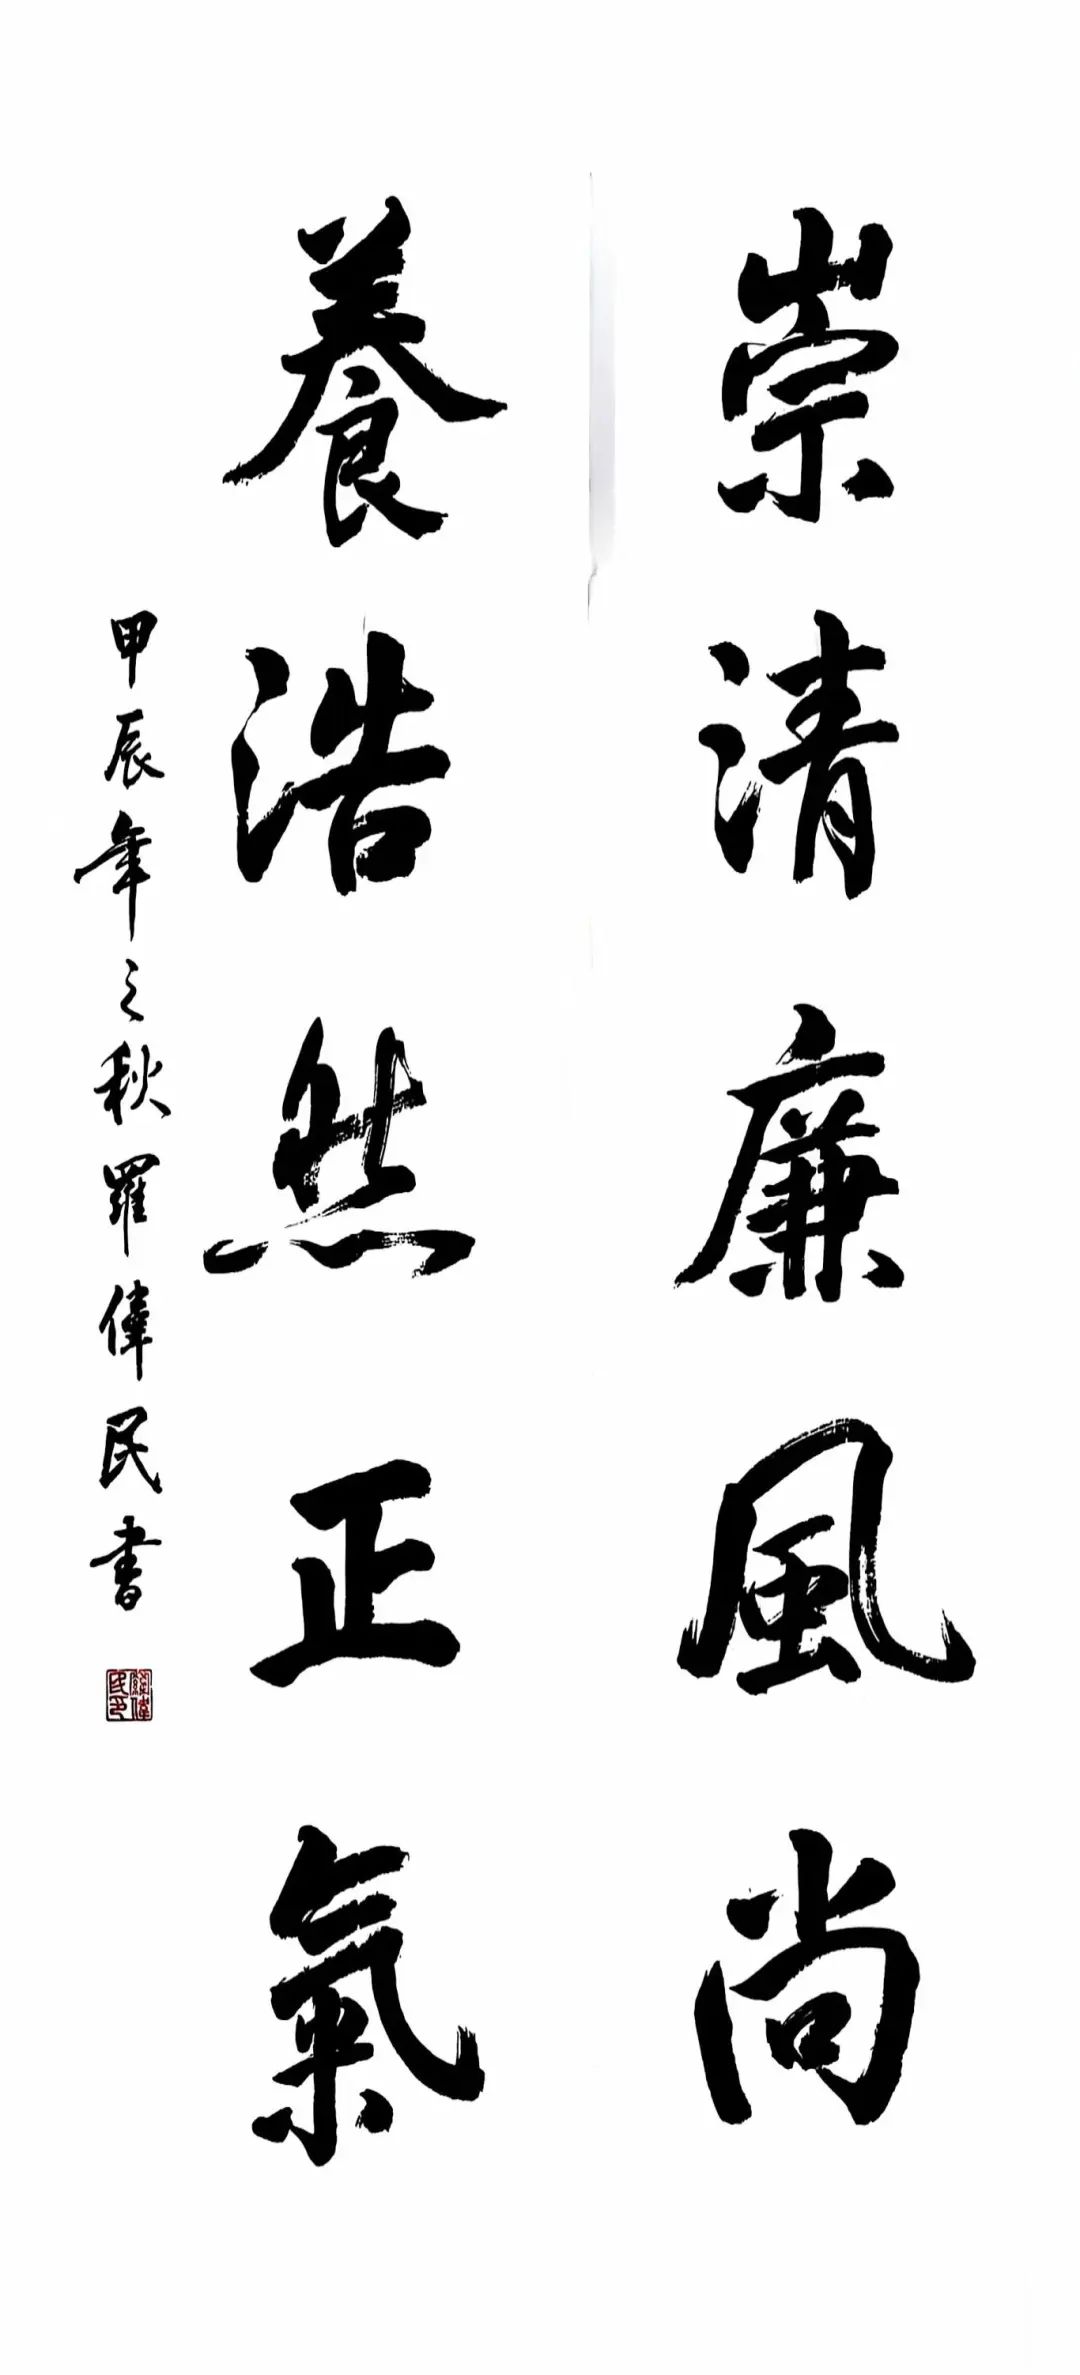 崇清廉風尚
養浩然正氣
甲辰年之秋羅偉民書